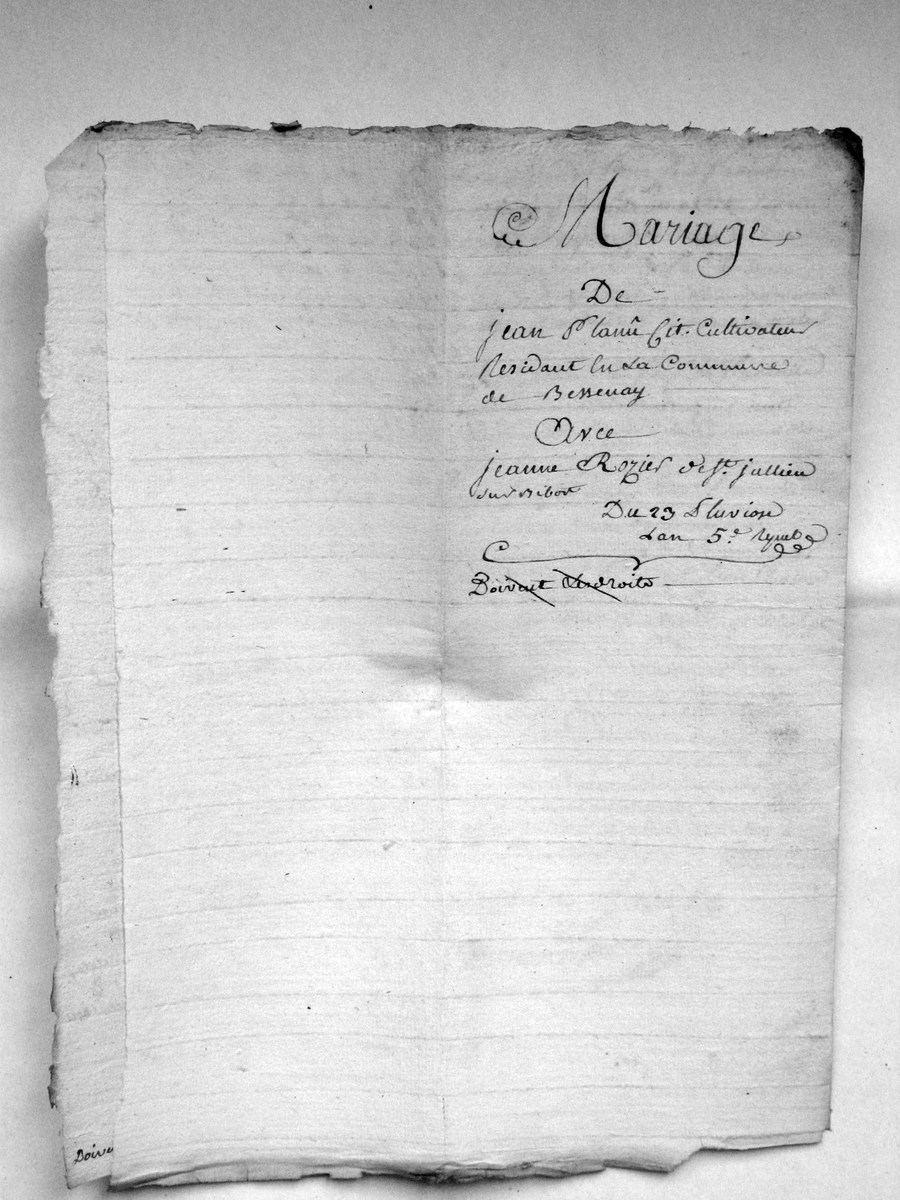 Mariage
De
jean Planû Cit. Cultivateur
Residant En La Commune
de Bessenay
Avec
jeanne Rozier de St. jullien
sur Bibost
Du 23 Pluviose
Lan 5e. Repub
Doivent Les droits
Doive